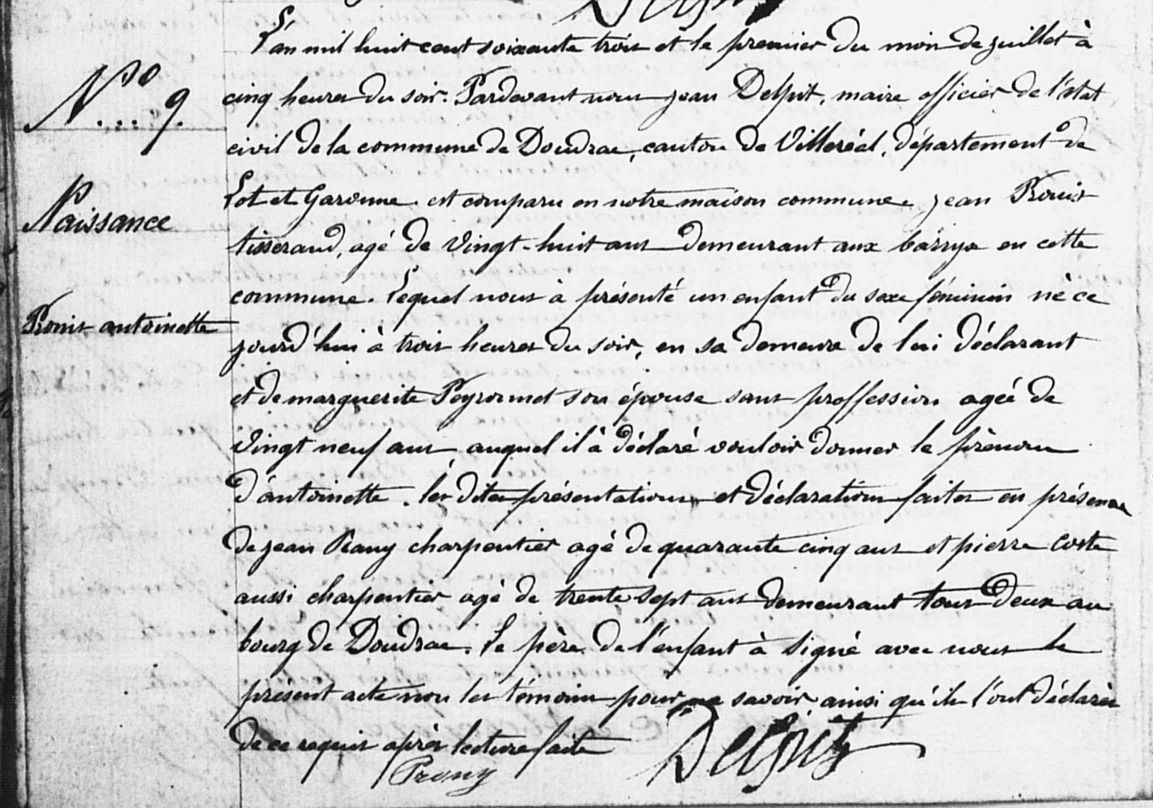 L'an mil huit cent soixante trois et le premier du mois de juillet à
N° 9.
cinq heures du soir. Pardevant nous jean Delpit, maire officier de l'état
civil de la commune de Doudrac, canton de Villeréal, département de
Naissance
Lot et Garonne. est comparu en notre maison commune. jean Prouis
tisserand, agé de vingt-huit ans demeurant aux barrys en cette
commune. Lequel nous à présenté un enfant du sexe féminin né ce
Prouis antoinette
jourd'hui à trois heures du soir, en sa demeure de lui déclarant
et de marguerite Peyrormet son épouse sans proffession agée de
vingt neuf ans auquel il à déclaré vouloir donner le prénom
d'antoinette. les dites présentations et déclarations faites en présence
de jean Rany charpentier agé de quarante cinq ans et pierre coste
aussi charpentier agé de trente sept ans demeurant tous deux au
bourg de Doudrac. Le père de l'enfant à signé avec nous le
présent acte non les témoins pour ne savoir, ainsi qu'ils l'ont déclaré
de ce requis après lecture faite
Prouy
Delpit